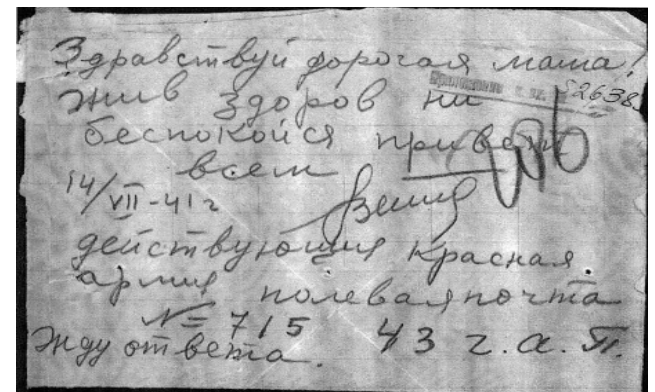 Здравствуй дорогая мама!
2638.
жив здоров ни
беспокойся привет
всем
14/VII-41 г
действующия Красная
армия полевая почта
№ 715 43 г.а.п.
жду ответа.